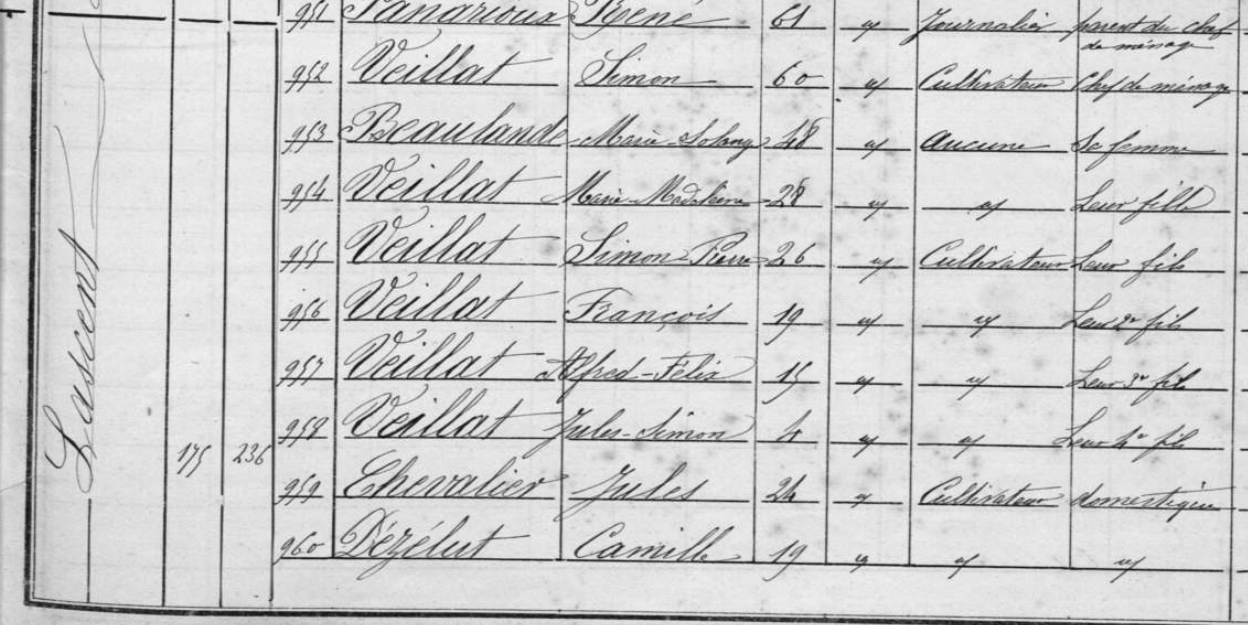 951 René 61 " Journalier parent du chef
de ménage
952 Veillat Simon 60 " Cultivateur Chef de ménage
953 Beaulande Marie-Solange 48 " Aucune Sa femme
954 Veillat Marie-Madeleine 28 " " Leur fille
955 Veillat Simon-Pierre 26 " Cultivateur Leur fils
956 Veillat François 19 " " Leur 2e fils
957 Veillat Alfred-Félix 15 " " Leur 3e fils
958 Veillat Jules-Simon 4 " " Leur 4e fils
175 236
959 Chevalier Jules 24 " Cultivateur domestique
960 Dézélut Camille 19 " " "